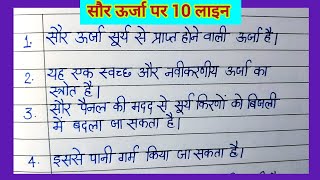 सौर ऊर्जा पर 10 लाइन
1. सौर ऊर्जा सूर्य से प्राप्त होने वाली ऊर्जा है।
2. यह एक स्वच्छ और नवीकरणीय ऊर्जा का
स्त्रोत है।
3. सौर पैनल की मदद से सूर्य किरणों को बिजली
में बदला जा सकता है।
4. इससे पानी गर्म किया जा सकता है।